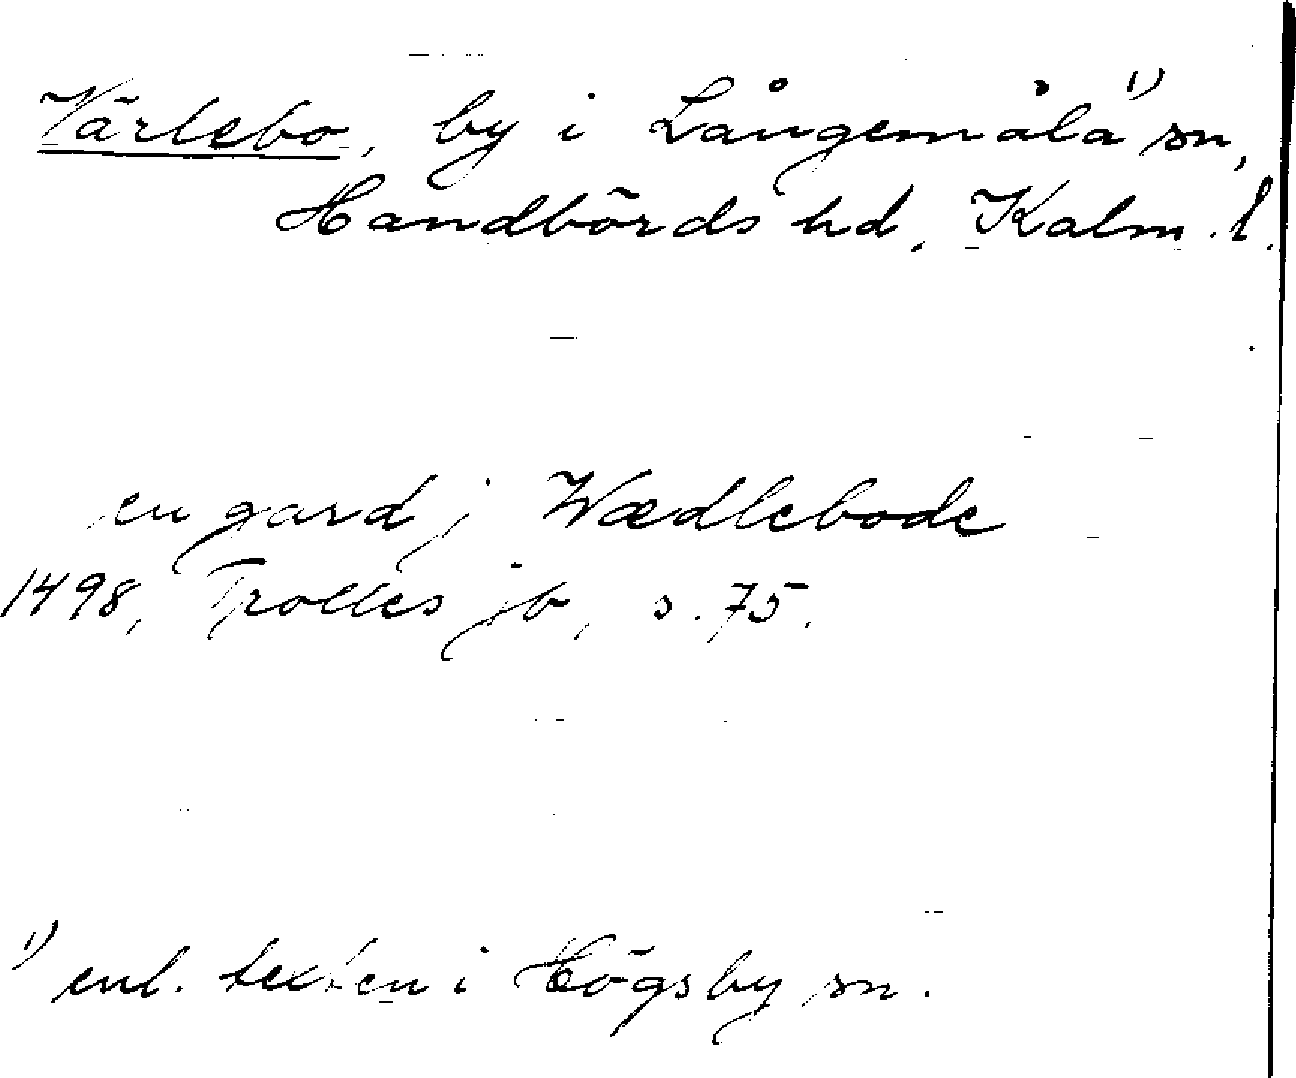 Värlebo, by i Långemåla 1) sn,
Handbörds hd, Kalm. l.
en gard j Wædlebode
1498, Trolles jb, s. 75.
1) enl. texten i Högsby sn.